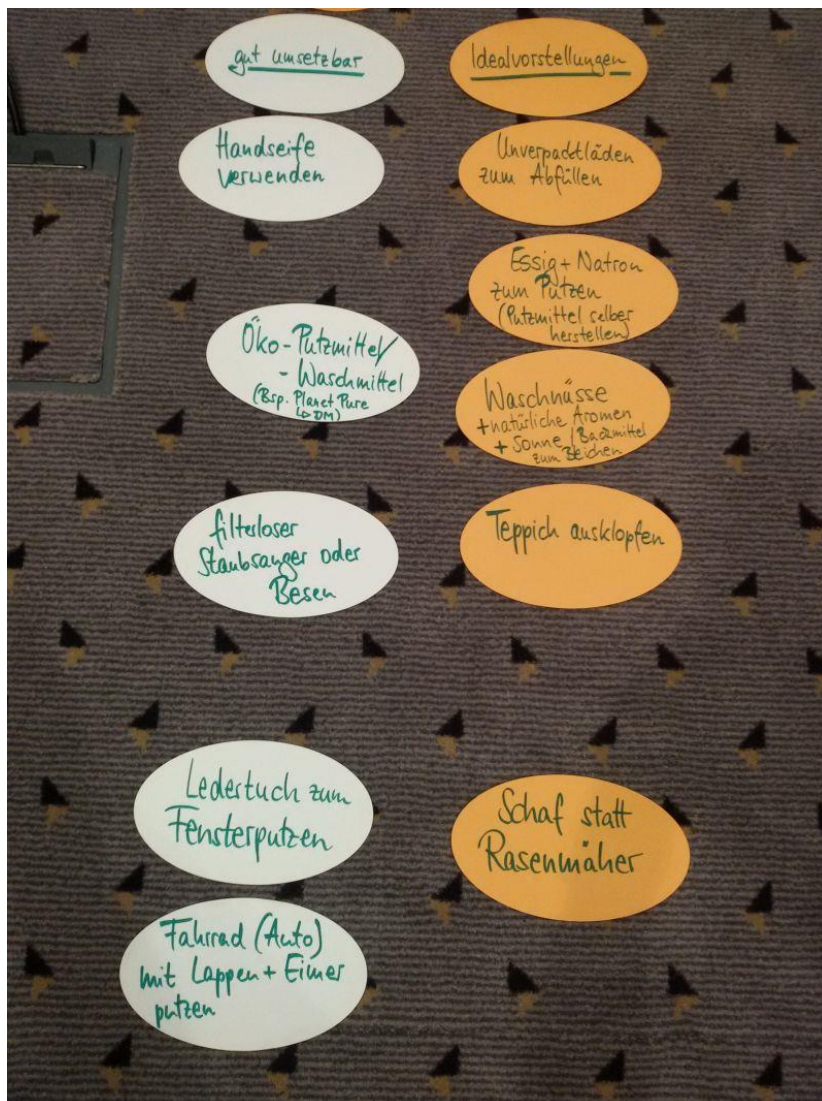 gut umsetzbar
Handseife
verwenden
Öko-Putzmittel/
- Waschmittel
(Bsp. Planet Pure
↳ DM)
filterloser
Staubsauger oder
Besen
Ledertuch zum
Fensterputzen
Fahrrad (Auto)
mit Lappen + Eimer
putzen
Idealvorstellungen
Unverpacktläden
zum Abfüllen
Essig + Natron
zum Putzen
(Putzmittel selber
herstellen)
Waschnüsse
+ natürliche Aromen
+ Sonne / Backmittel
zum Bleichen
Teppich ausklopfen
Schaf statt
Rasenmäher